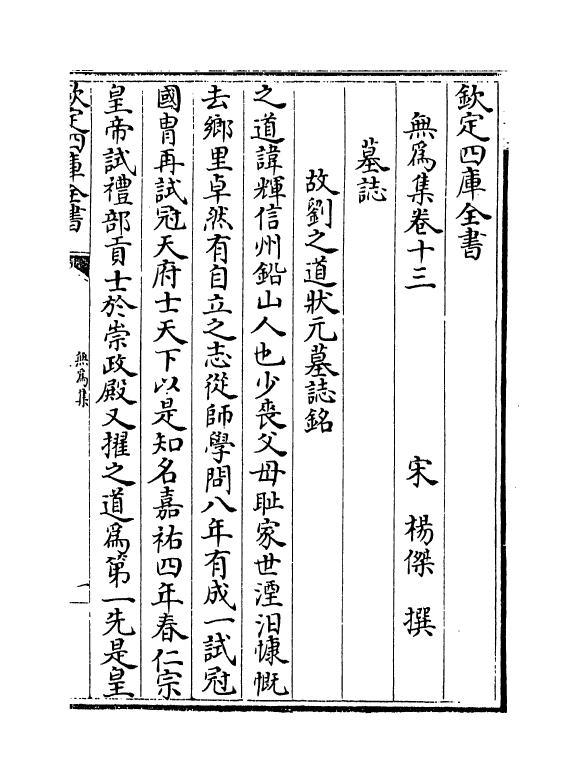 欽定四庫全書
無為集卷十三
宋　楊傑　撰
墓誌
故劉之道狀元墓誌銘
之道諱輝信州鉛山人也少喪父母耻家世湮汨慷慨
去鄉里卓然有自立之志從師學問八年有成一試冠
國胄再試冠天府士天下以是知名嘉祐四年春仁宗
皇帝試禮部貢士於崇政殿又擢之道為第一先是皇
欽定四庫全書
無為集
一